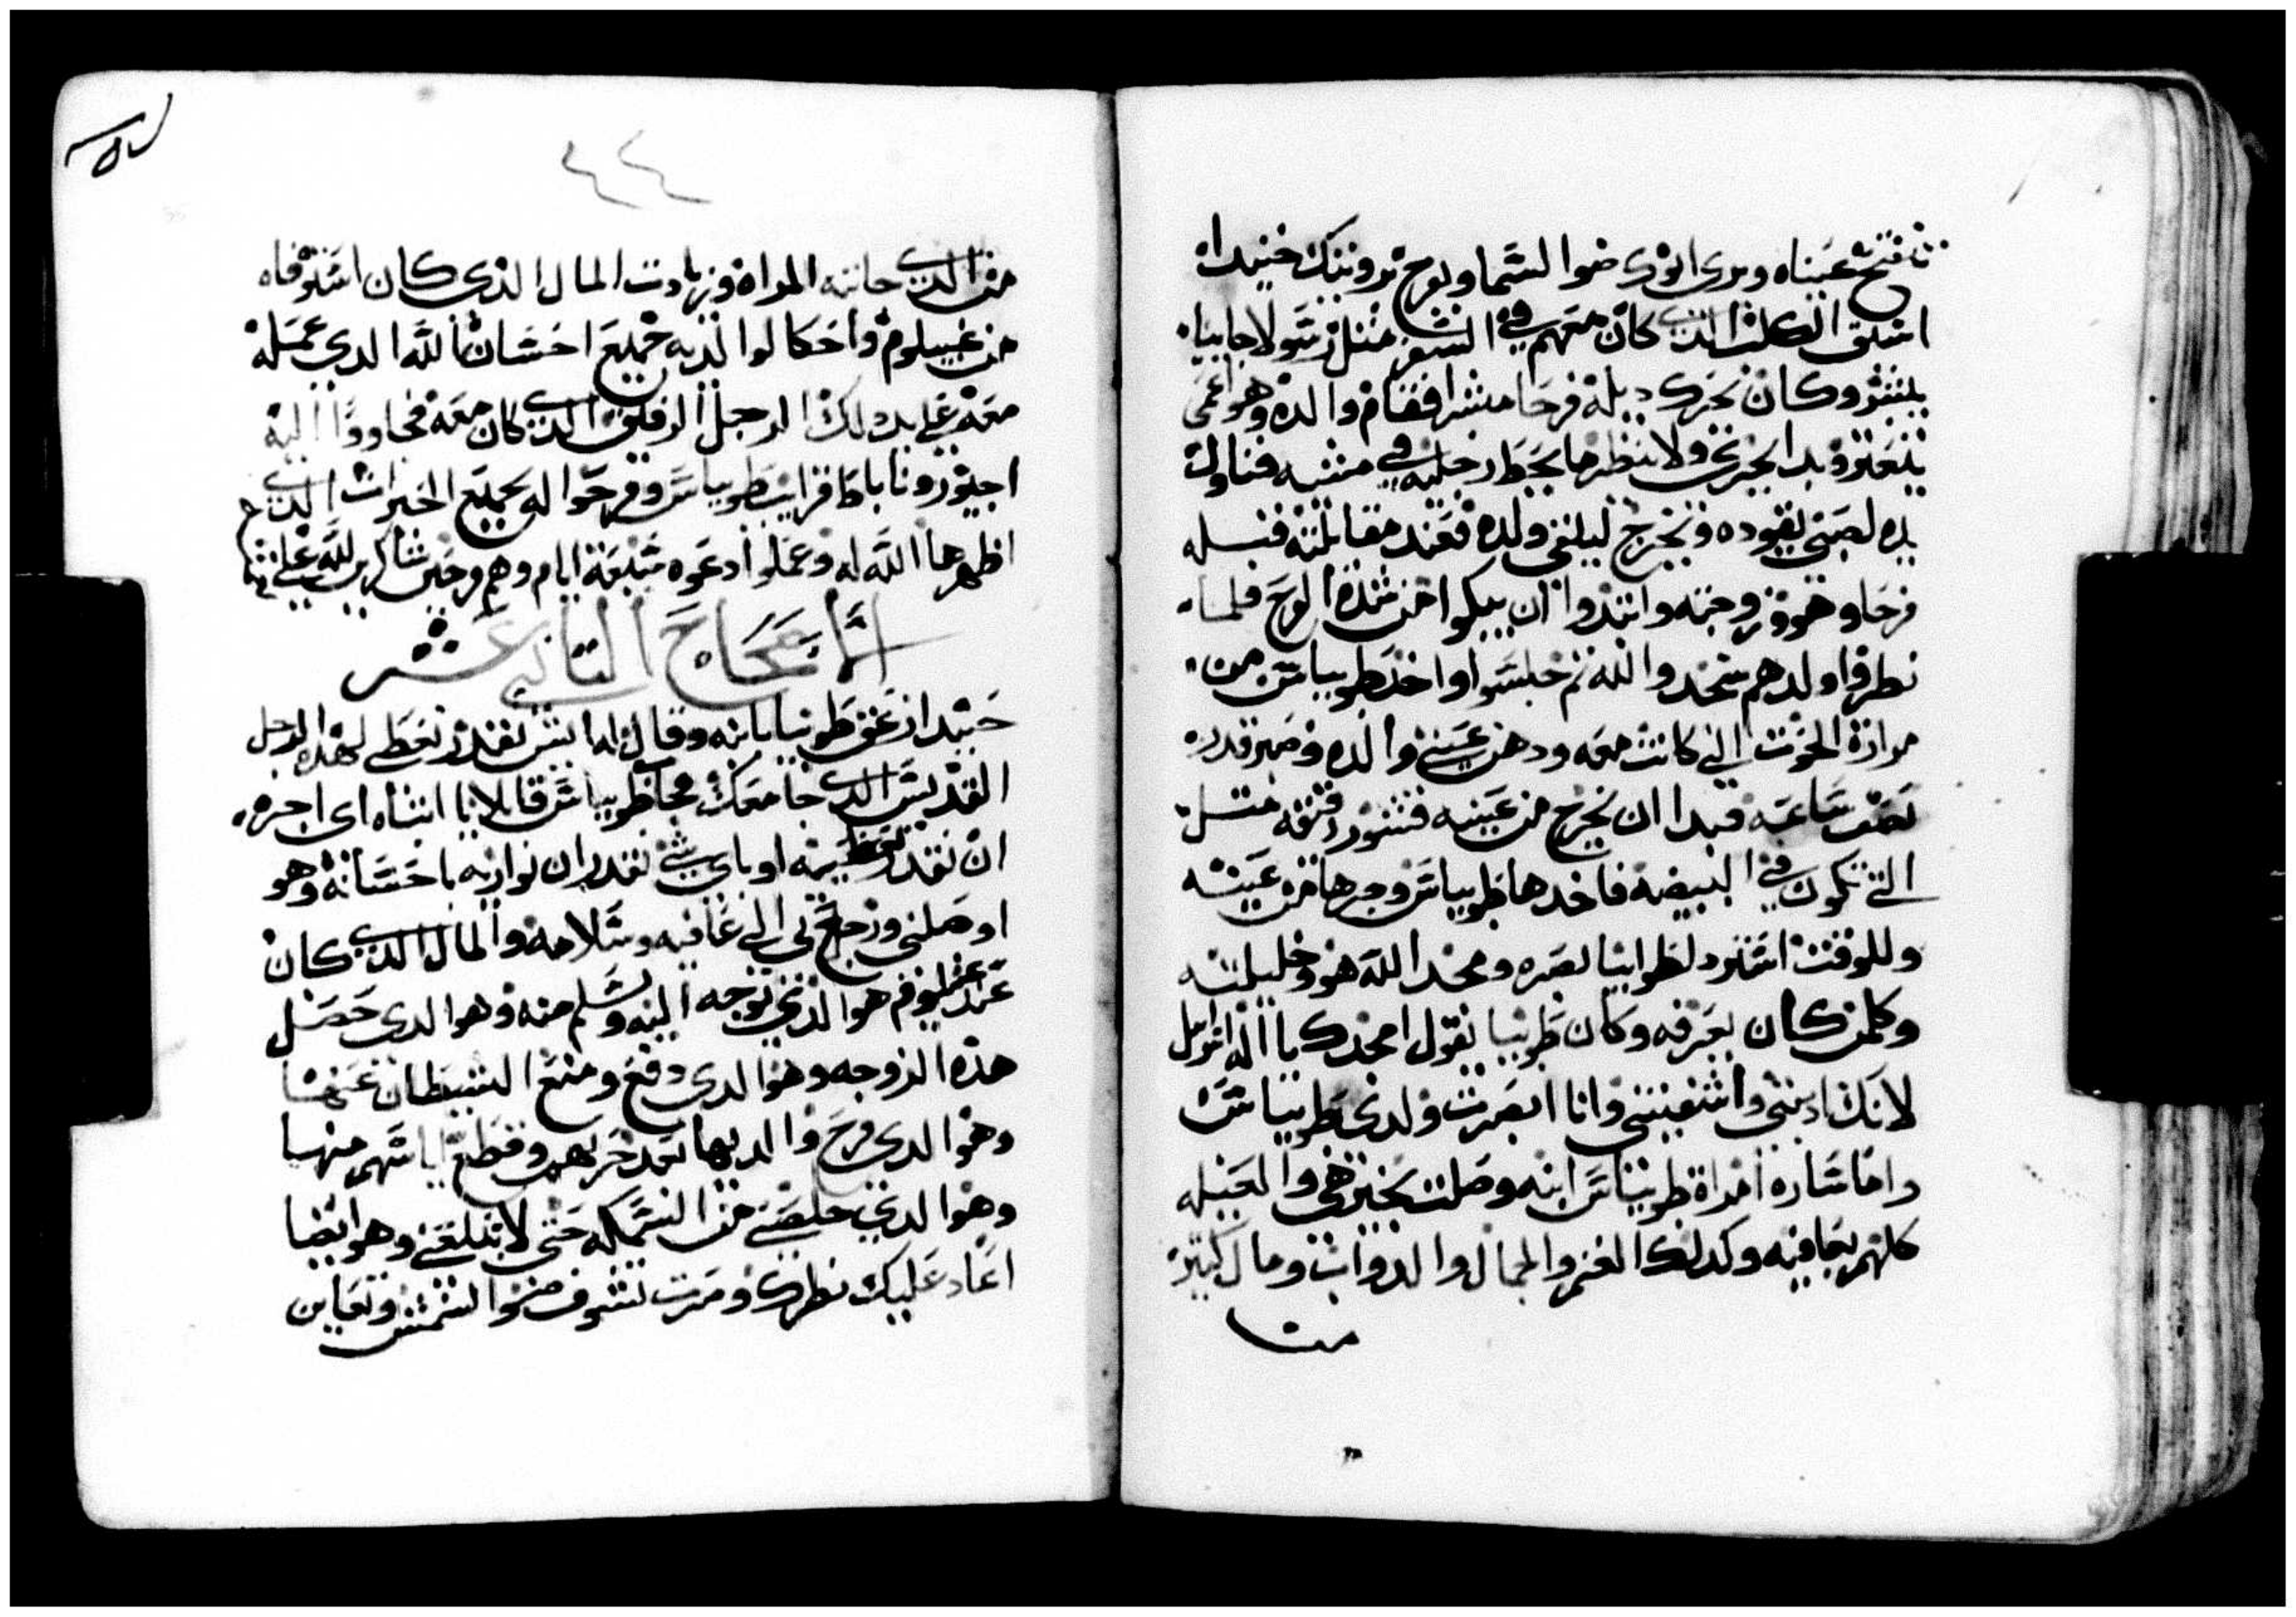 تنفتح عيناه ويرى ابوك ضوا السما ويفرح برويتك حنيدا
اسبق الكلب الذي كان معهم في السفر مثل رسول جا يبا
يبشر وكان يحرك ديله فرحا مسرا فقام والده وهو اعمى
يتعتر وبدا يجري ولا ينظر ما يحط رجليه في مشيه فناول
يده لصبي يقوده وخرج ليلقى ولده فعند مقابلته قبله
فرحا وهو وزوجته وابتدوا ان يبكوا من شدة الفرح فلما
نظروا ولدهم سجدوا لله ثم جلسوا واخد طوبياس من
مرارة الحوت التي كانت معه ودهن عيني والده وصبر قدر
نصف ساعة فبدا ان يخرج من عينيه قشور رقيقه متل
التي تكون في البيضه فاخدها طوبياس وجرها من عينيه
وللوقت استرد لطوبيا بصره ومجدا الله هو وحليلته
وكلمن كان يعرفه وكان طوبيا يقول امجدك يا اله اسرايل
لانك ادبتني واشفيتني وانا ابصرت ولدي طوبياس
واما ساره امراة طوبياس ابنه وصلت بخير هي والعيله
كلهم بعافيه وكدلك الغنم والجمال والدواب ومال كتير
من
٤٤
من الذي جابته المراة وزيادت المال الذي كان استوفاه
من غبيلوم واحكا لوالديه جميع احسان الله الدي عمله
معه على يد دلك الرجل الرفيق الذي كان معه فجاووا اليه
اجيور وناباط قرايب طوبياس وفرحوا له بجميع الخيرات الذي
اظهرها الله له وعملوا دعوه سبعة ايام وهم فرحين شاكرين لله على
الاصحاح التاني عشر
حنيد ازعق طوبيا بابنه وقال له ايش نقدر نعطي لهدا الرجل
القديس الدي جا معك فجا طوبياس قايلا يا ابتاه اي اجره
ان نقدر نعطيه او باي شي نقدر ان نوازيه باحسانه وهو
اوصلني ورجع بي الى عافيه وسلامه والمال الذي كان
عند غبيلوم هو الذي توجه اليه وتسلم منه وهوا الدي حصل
هذه الزوجه وهوا الدي دفع ومنع الشيطان عنها
وهوا الدي فرح والديها بعد حزنهم وقطع اياسهم منها
وهوا الدي خلصني من السمكه حتى لا تبتلعني وهو ايضا
اعاد عليك نظرك وصرت تشوف ضوا الشمس وتعاين